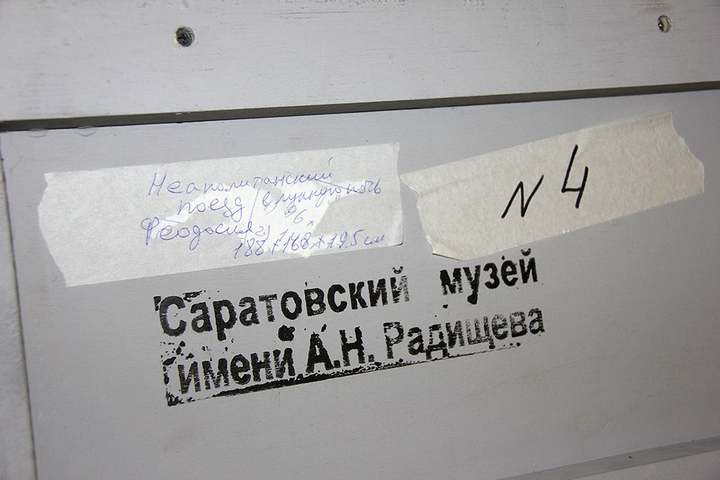 Неаполитанский
поезд/в лунную ночь
Феодосия
188*168*19.5 см
N 4
Саратовский музей
имени А.Н. Радищева